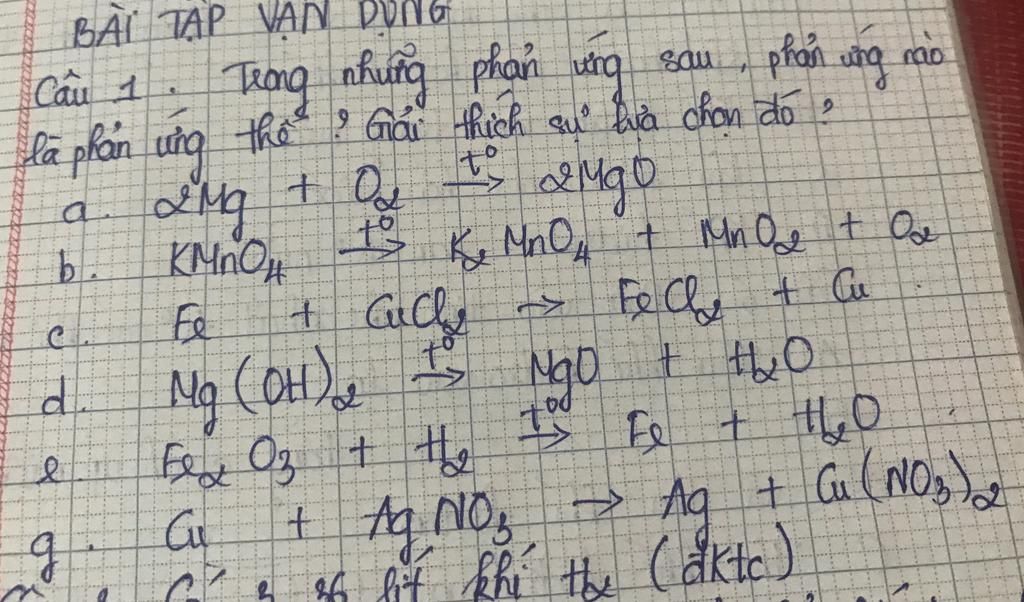 BÀI TẬP VẬN DỤNG
Câu 1. Trong những phản ứng sau, phản ứng nào
là phản ứng thế? Giải thích sự lựa chọn đó?
a. 2Mg + O₂ t° → 2MgO
b. KMnO₄ t° → K₂MnO₄ + MnO₂ + O₂
c. Fe + CuCl₂ → FeCl₂ + Cu
d. Mg(OH)₂ t° → MgO + H₂O
e. Fe₂O₃ + H₂ t° → Fe + H₂O
g. Cu + AgNO₃ → Ag + Cu(NO₃)₂
lít khí H₂ (đktc)